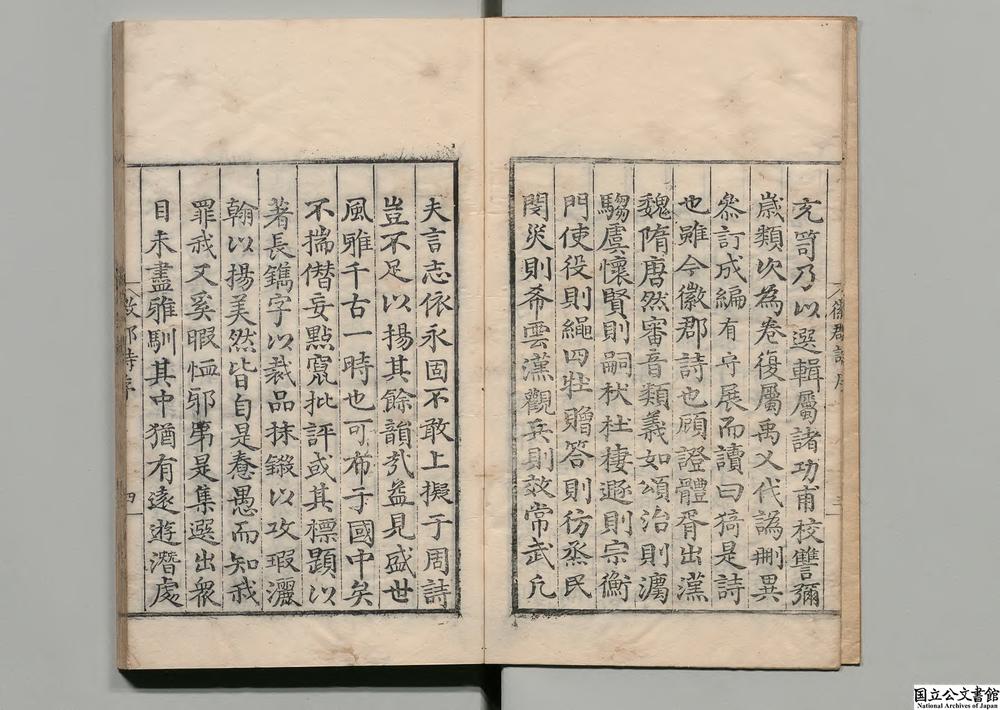 充笥乃以選輯屬諸功甫校讐彌
歲類次為卷復屬禹乂代譌刪異
叅訂成編有守展而讀曰猗是詩
也雖今徽郡詩也顧證體胥出漢
魏隋唐然審音類義如頌治則灟
騶虞懷賢則嗣杕杜棲遯則宗衡
門使役則繩四牡贈答則彷烝民
閔災則希雲漢觀兵則效常武凡
夫言志依永固不敢上擬于周詩
豈不足以揚其餘韻㢤益見盛世
風雅千古一時也可布于國中矣
不揣僭妄點竄批評或其標題以
著長鐫字以裁品抹鍛以攻瑕灑
翰以揚美然皆自是惷愚而知我
罪我又奚暇恤邪第是集選出衆
目未盡雅馴其中猶有遠遊潛處
徽郡詩序
三
四
国立公文書館
National Archives of Japan